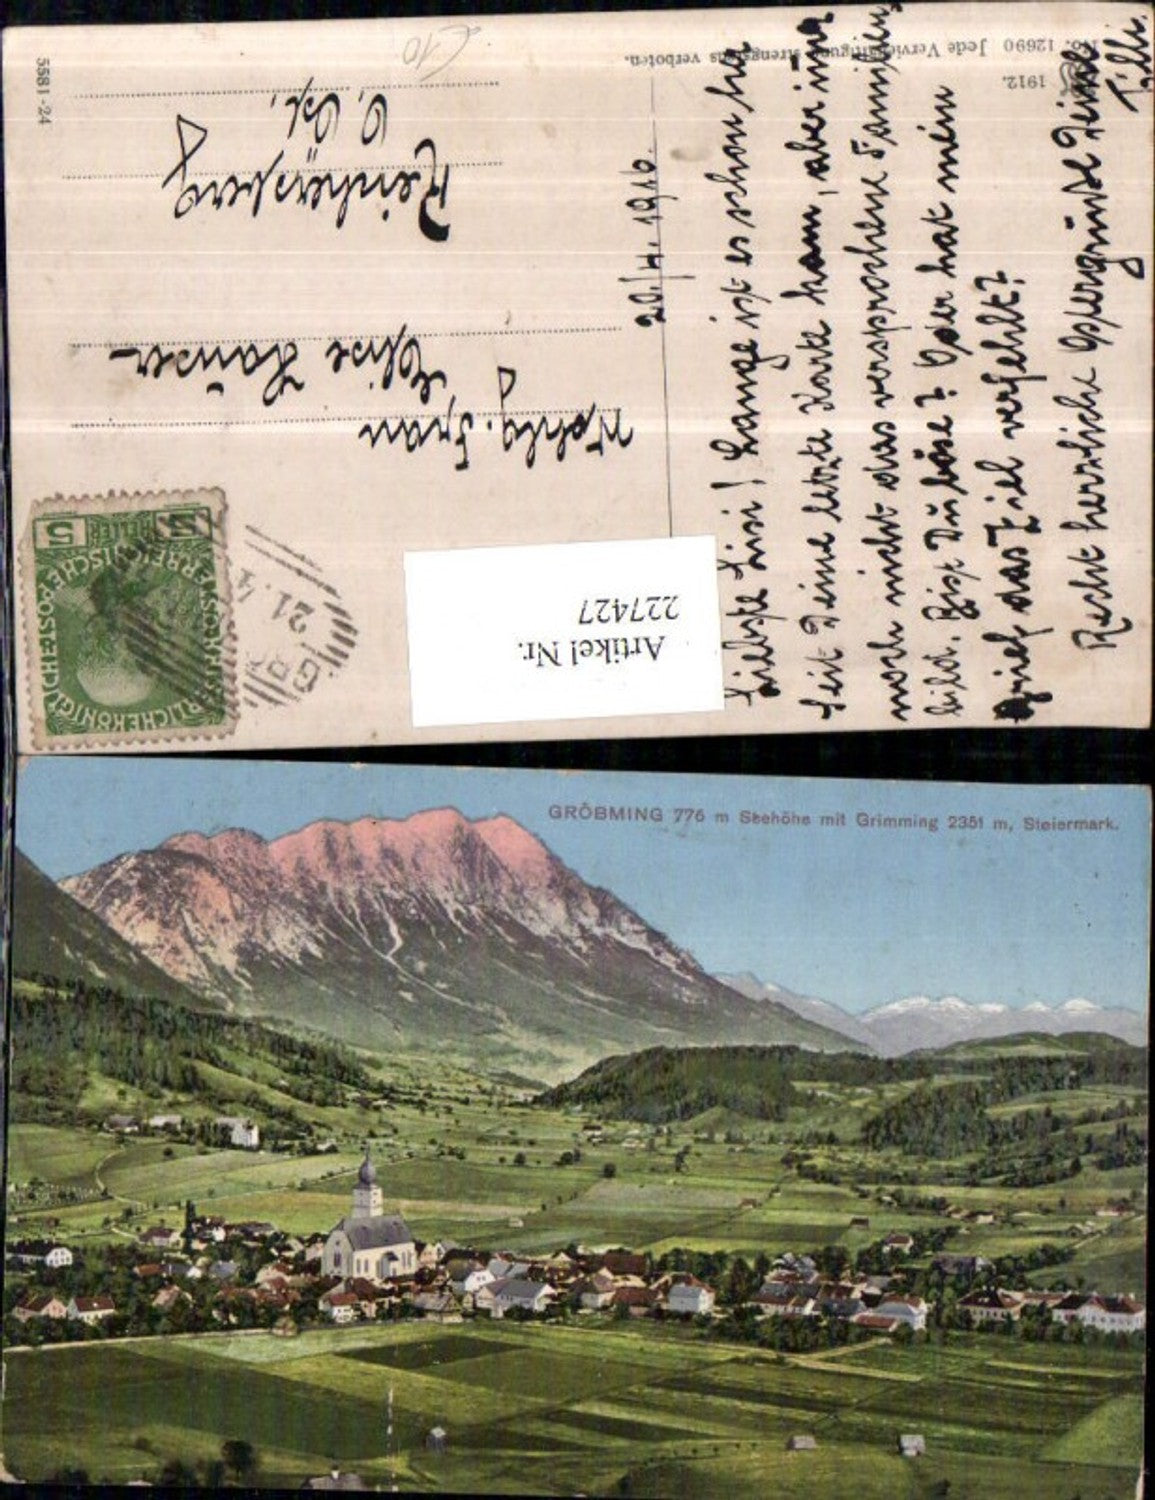 No. 12690 Jede Vervielfältigung strengstens verboten.
1912.
5581-24
€10
20./4. 1916.
Liebste Lisi! Lange ist es schon her
seit Deine letzte Karte kam, aber immer
noch nicht das versprochene Familien-
bild. Bist Du böse? Oder hat mein
Brief das Ziel verfehlt?
Recht herzliche Ostergrüße Deine
Tilli.
Wohlg. Frau
Elise
Reichersberg
O. Öst.
5 HELLER 5
KAISERLICHE KÖNIGLICHE ÖSTERREICHISCHE POST
21.4
Artikel Nr.
227427
GRÖBMING 776 m Seehöhe mit Grimming 2351 m, Steiermark.